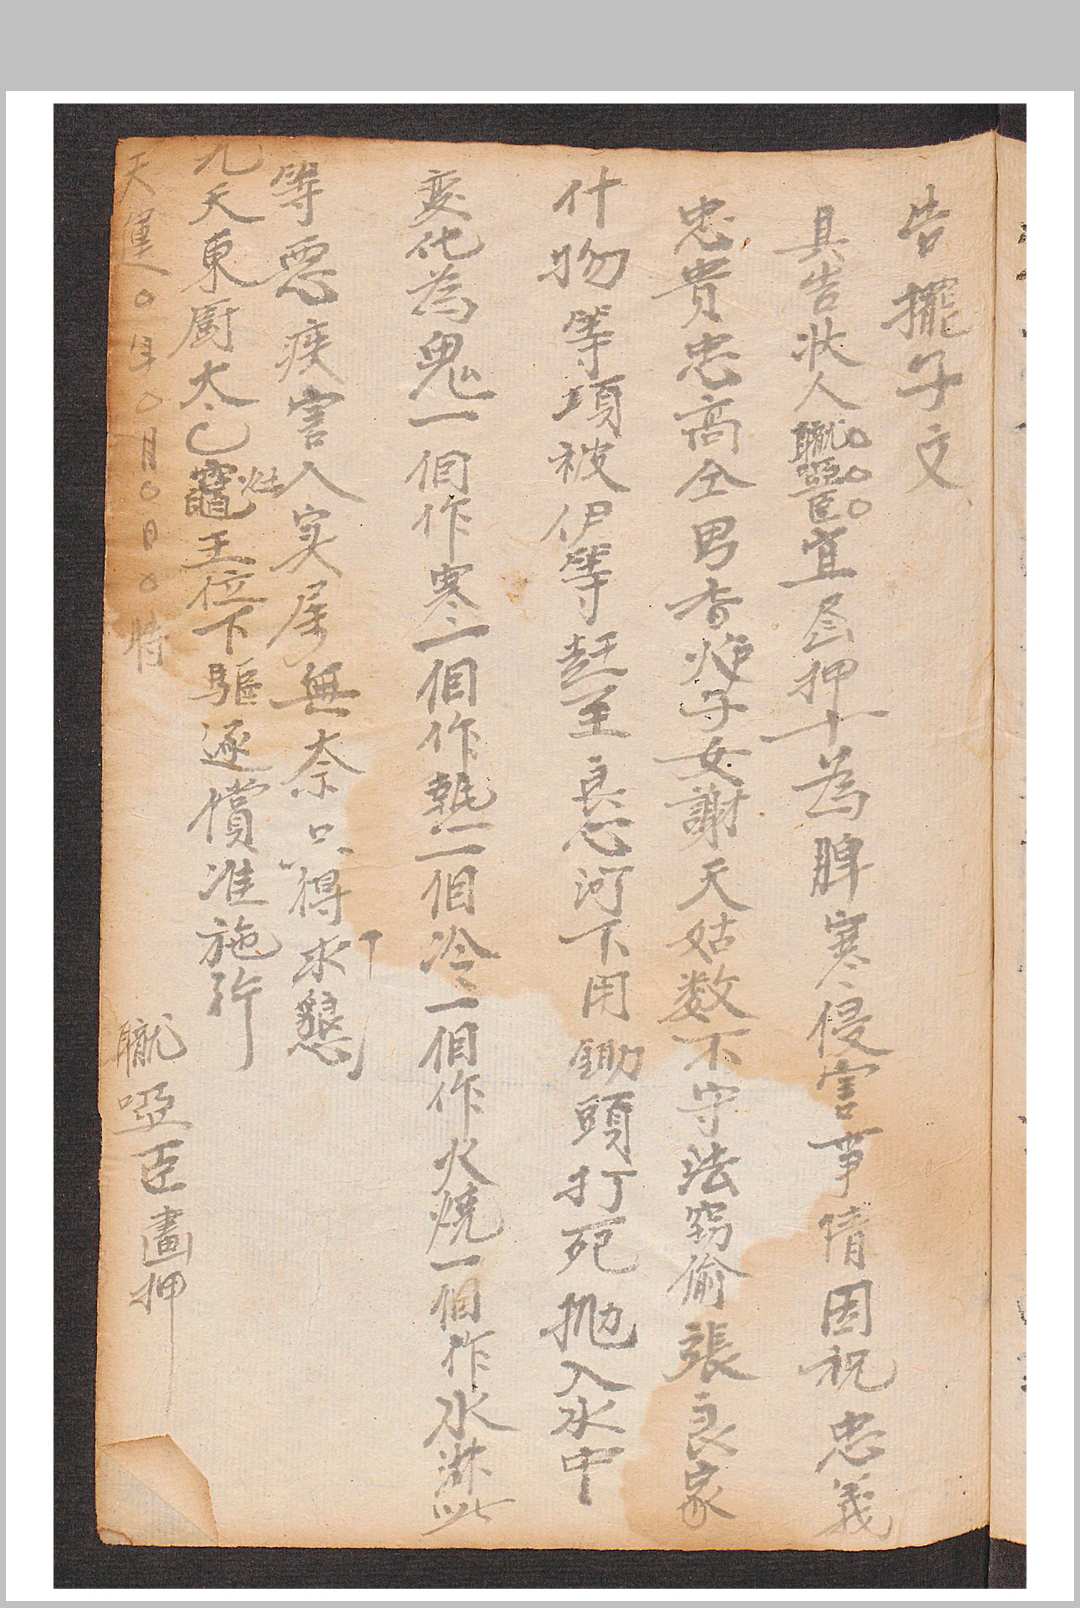 告擺子文
具告狀人職啞臣○○○宜居押十為脾寒侵害事情因祝忠義
忠貴忠高仝男香炉子女謝天姑数不守法窃偷張良家
什物等項被伊等赶至良心河下用鋤頭打死抛入水中
変化為鬼一個作寒一個作熱一個冷一個作火燒一個作水淋此
等惡疾害人实属無奈只得求懇
九天東厨太乙竈灶王位下驅逐償准施行
天運○年○月○日○時
職啞臣畫押